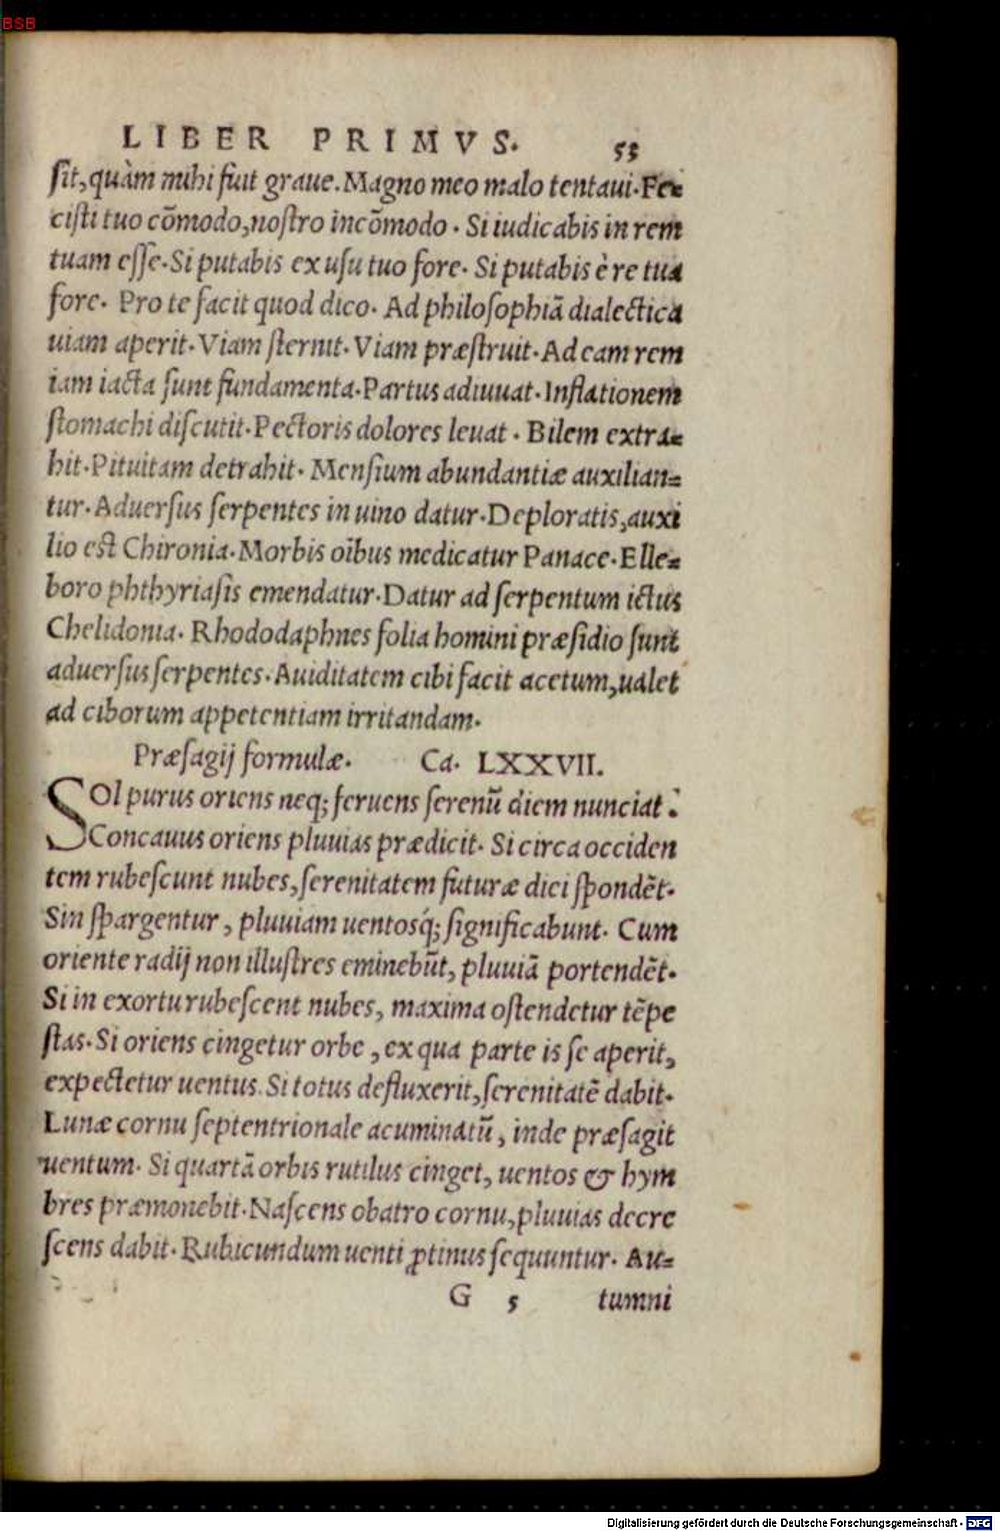 BSB
LIBER PRIMVS. 53
ſit, quàm mihi fuit graue. Magno meo malo tentaui. Fe⸗
ciſti tuo cõmodo, noſtro incõmodo. Si iudicabis in rem
tuam eſſe. Si putabis ex uſu tuo fore. Si putabis è re tua
fore. Pro te facit quod dico. Ad philoſophiã dialectica
uiam aperit. Viam ſternit. Viam præſtruit. Ad eam rem
iam iacta ſunt fundamenta. Partus adiuuat. Inflationem
ſtomachi diſcutit. Pectoris dolores leuat. Bilem extra⸗
hit. Pituitam detrahit. Menſium abundantiæ auxilian⸗
tur. Aduerſus ſerpentes in uino datur. Deploratis, auxi
lio eſt Chironia. Morbis oĩbus medicatur Panace. Elle⸗
boro phthyriaſis emendatur. Datur ad ſerpentum ictus
Chelidonia. Rhododaphnes folia homini præſidio ſunt
aduerſus ſerpentes. Auiditatem cibi facit acetum, ualet
ad ciborum appetentiam irritandam.
Præſagij formulæ. Ca. LXXVII.
SOl purus oriens neq; feruens ſerenũ diem nunciat:
Concauus oriens pluuias prædicit. Si circa occiden
tem rubeſcunt nubes, ſerenitatem futuræ diei ſpondẽt.
Sin ſpargentur, pluuiam uentosq́; ſignificabunt. Cum
oriente radij non illuſtres eminebũt, pluuiã portendẽt.
Si in exortu rubeſcent nubes, maxima oſtendetur tẽpe
ſtas. Si oriens cingetur orbe, ex qua parte is ſe aperit,
expectetur uentus. Si totus defluxerit, ſerenitatẽ dabit.
Lunæ cornu ſeptentrionale acuminatũ, inde præſagit
uentum. Si quartã orbis rutilus cinget, uentos & hym
bres præmonebit. Naſcens obatro cornu, pluuias decre
ſcens dabit. Rubicundum uenti ꝓtinus ſequuntur. Au⸗
G 5 tumni
Digitalisierung gefördert durch die Deutsche Forschungsgemeinschaft - DFG